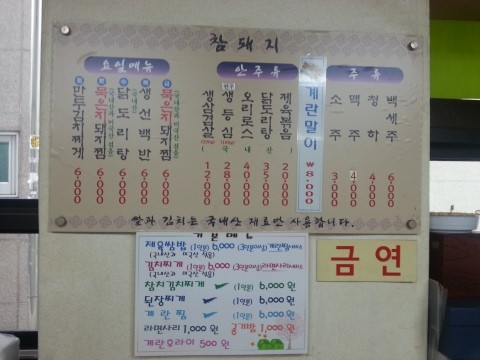 참돼지
요일메뉴
월 만두김치찌개 6,000
화 묵은지돼지찜 6,000
수 닭도리탕 6,000
목 생선백반 6,000
금 묵은지돼지찜 6,000
안주류
생삼겹살 12,000
생등심 28,000
오리로스
닭도리탕
제육볶음 20,000
(국내산)
계란말이 ₩8,000
주류
소주 3,000
맥주 4,000
청하 4,000
백세주 6,000
쌀과 김치는 국내산 재료만 사용합니다.
계절메뉴
제육쌈밥 (1인분) 6,000 (3인이상)계란찜서비스
김치찌개 (1인분) 6,000 (3인이상)라면사리서비스
참치김치찌개 (1인분) 6,000원
된장찌개 (1인분) 6,000원
계란찜 (1인분) 6,000원
라면사리 1,000원 공기밥 1,000원
계란후라이 500원
금연